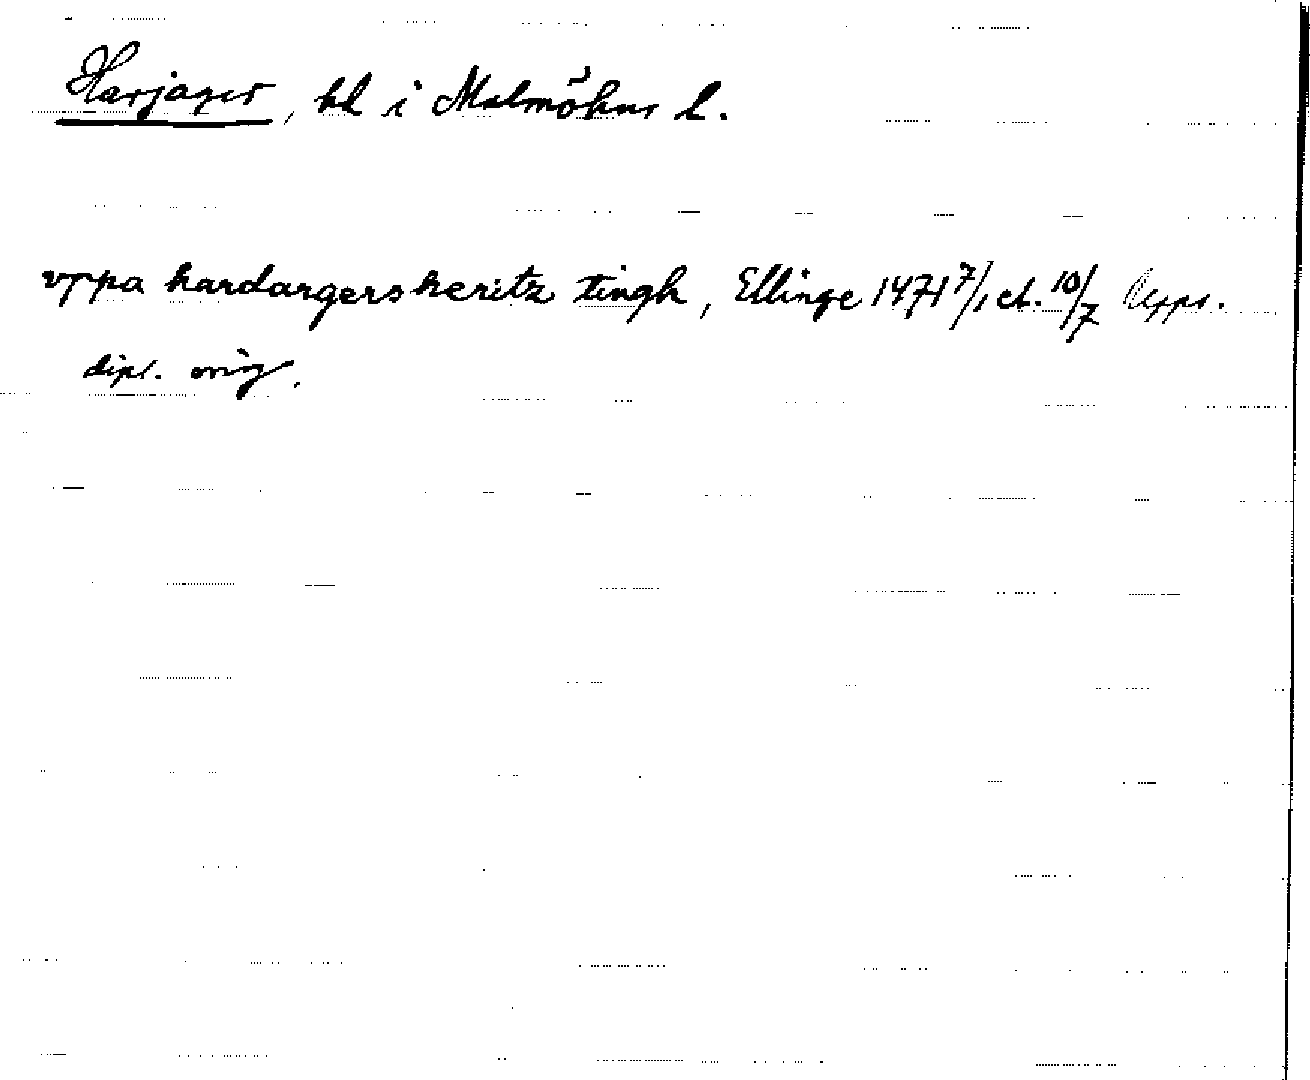 Harjager, hd i Malmöhus l.
vppa hardargersheritz tingh, Ellinge 1471 7/1 et. 10/7 Upps.
dipl. orig.